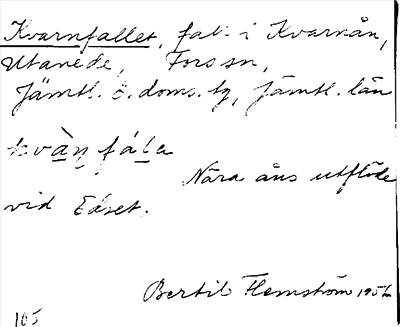 Kvarnfallet, fall i Kvarnån,
Utanede, Fors sn,
Jämtl. ö. doms. tg, Jämtl. län
kvà̱ṉ fáḻa
Nära åns utflöde
vid Edset.
Bertil Flemström 1956
165